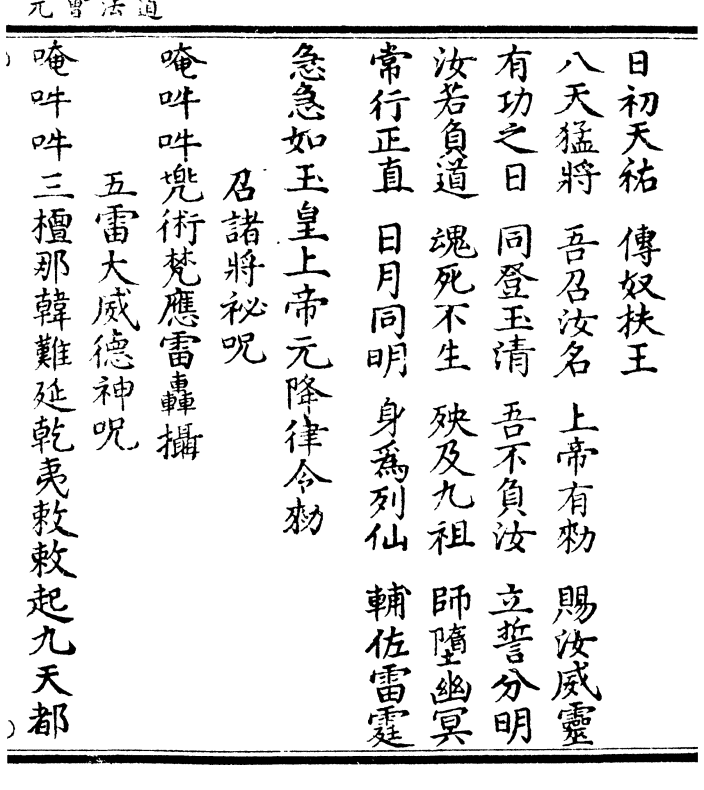 日初天祐　傳奴扶王
八天猛將　吾召汝名　上帝有勑　賜汝威靈
有功之日　同登玉清　吾不負汝　立誓分明
汝若負道　魂死不生　殃及九祖　師墮幽冥
常行正直　日月同明　身爲列仙　輔佐雷霆
急急如玉皇上帝元降律令勑
召諸將祕呪
唵吽吽兠術梵應雷轟攝
五雷大威德神呪
唵吽吽三檀那韓難延乾夷敕敕起九天都
道法會元